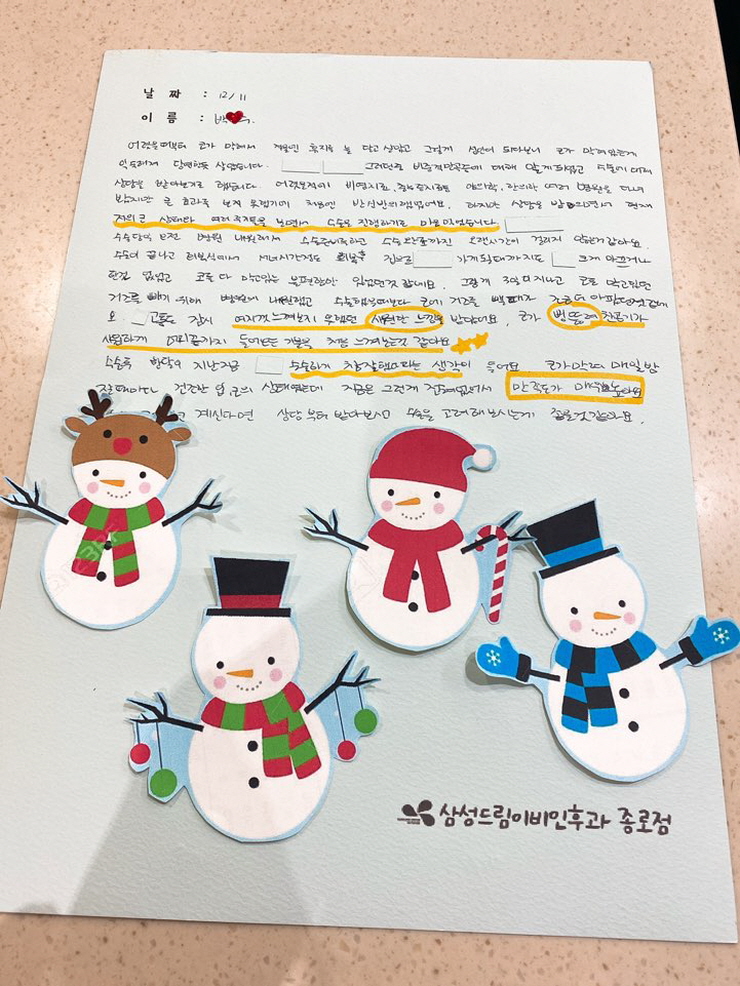 날 짜 : 12/11
이 름 : 박
어렸을때부터 코가 막혀서 휴지를 늘 달고 살았고 그렇게 코가 막혀있는게
익숙해져 당연한듯 살았습니다. 그러던중 비중격만곡증에 대해 알게 되었고 수술에 대해
상담을 받아보기로 했습니다. 어렸을적에 비염치료, 한의원 여러 병원을 다녀
봤지만 큰 효과를 보지 못했기에 처음엔 반신반의했어요. 하지만 상담을 받으면서 현재
저의 코 상태와 여러 보면서 수술을 진행하기로 마음먹었습니다
수술당일 오전 병원 내원해서 수술준비하고 수술 오랜시간이 걸리지 않은거같아요.
수술이 끝나고 회복실에서 시간정도 회복후 집으로 가게 될때까지도 크게 아프거나
한건 없었고 코를 다 막고있는 불편함만 있었던것 같네요. 그렇게 3일이 지나고 코를 막고있던
거즈를 빼기 위해 병원에 내원했고 수술했을때보다 코에 거즈를 뺄때가
요. 고통도 잠시 여지껏 느껴보지 못했던 시원한 느낌을 받았어요, 코가 뻥뚫려 찬공기가
시원하게 끝까지 들어오는 기분을 처음 느껴보는것 같아요
수술후 한달이 지난지금 수술하기 참잘했다라는 생각이 들어요 코가막혀 매일밤
건조한 입 상태였는데 지금은 그런게 전혀없어서 만족도가 매우높아요
계신다면 상담부터 받아보시고 수술을 고려해보시는게 좋을것같아요.
삼성드림이비인후과 종로점